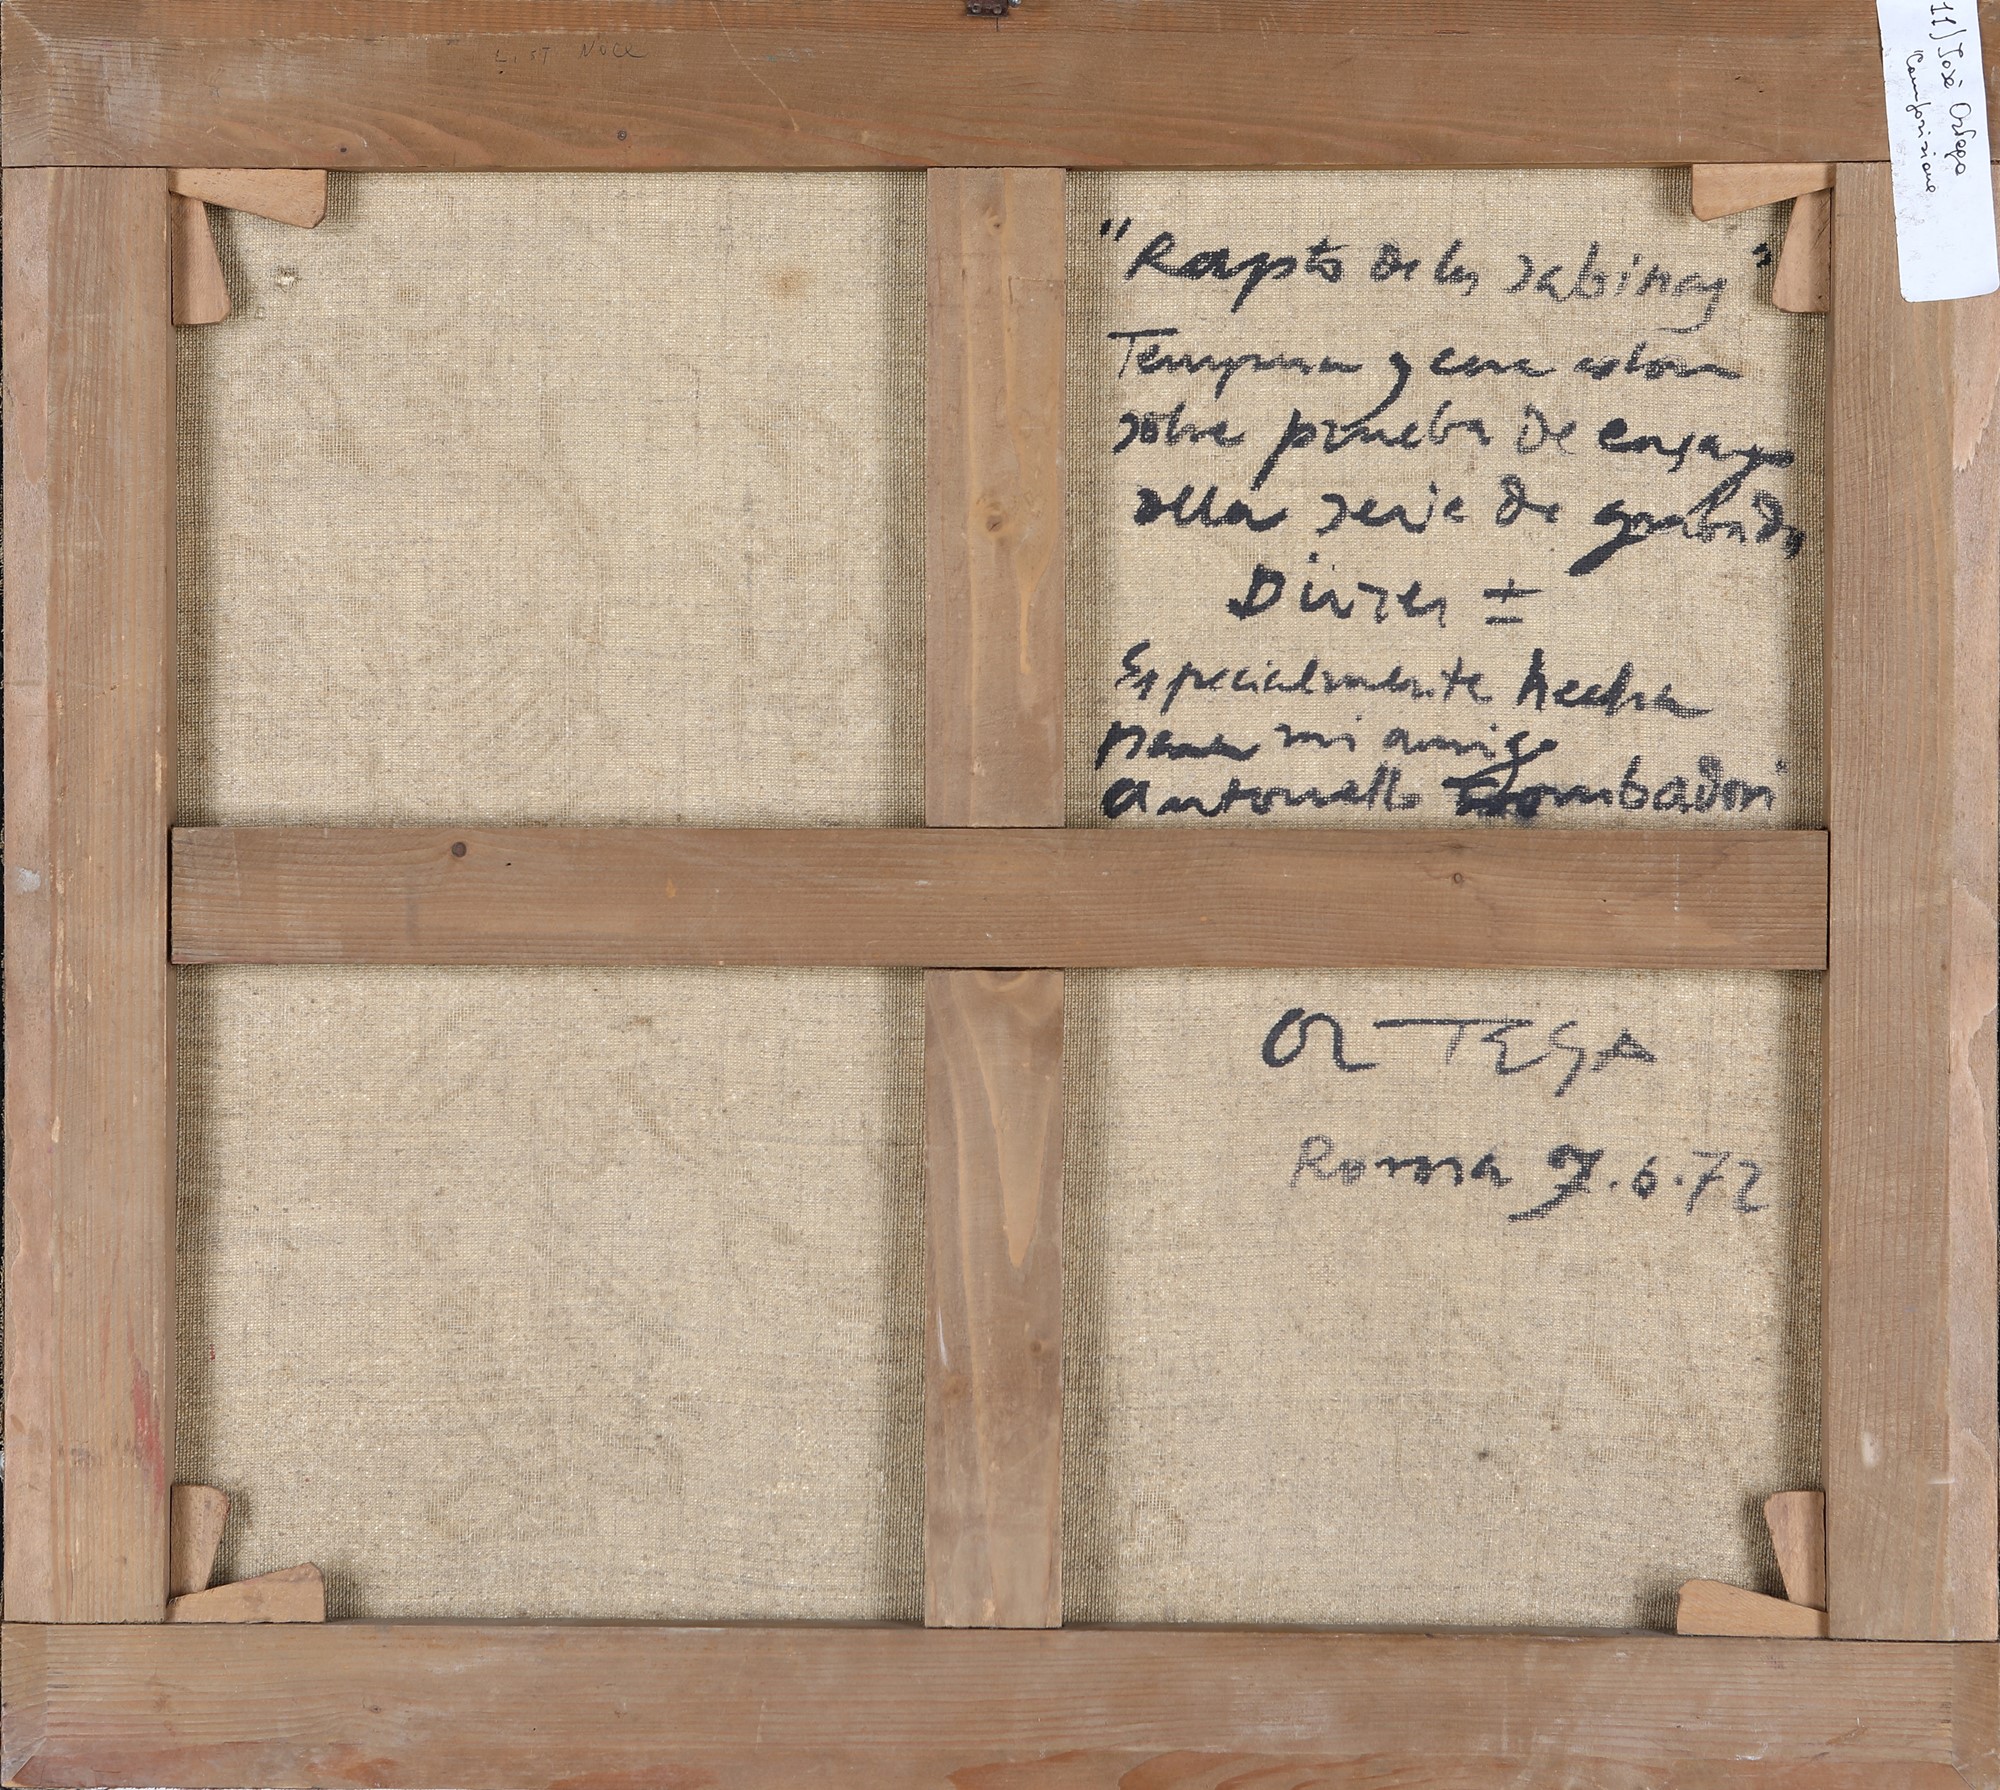 LIST NOCE
11) Josè Ortega
"Composizione
"Rapto de las sabinas"
Tempera y cera
sobre prueba de ensayo
serie de grabados
Especialmente hecha
para mi amigo
Antonello Trombadori
ORTEGA
Roma 7.6.72